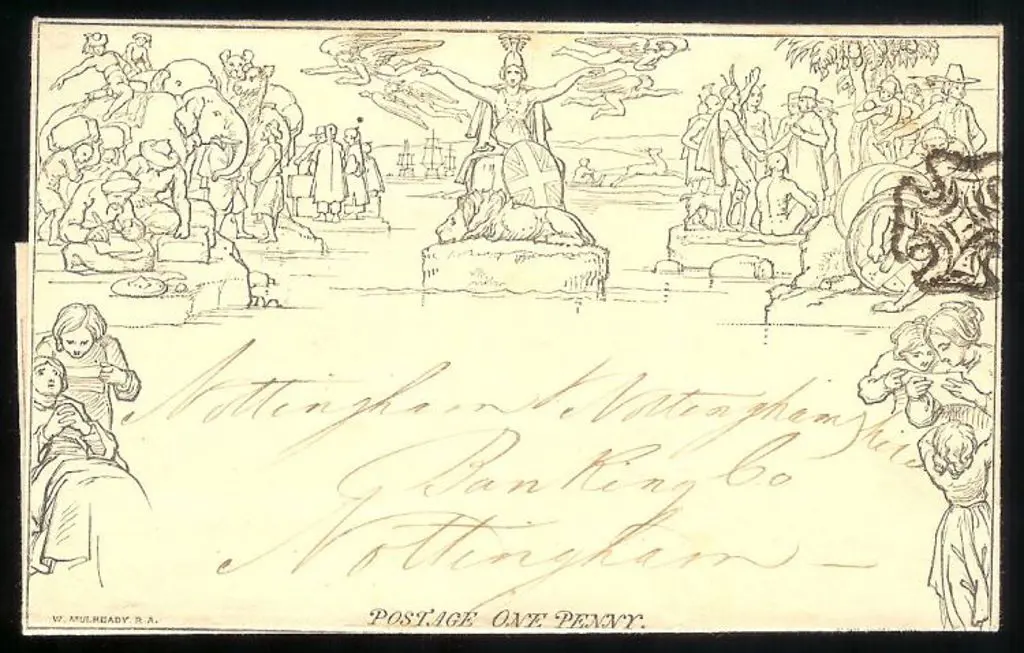 Nottingham & Nottinghamshire
Banking Co
Nottingham
POSTAGE ONE PENNY.
W. MULREADY. R. A.